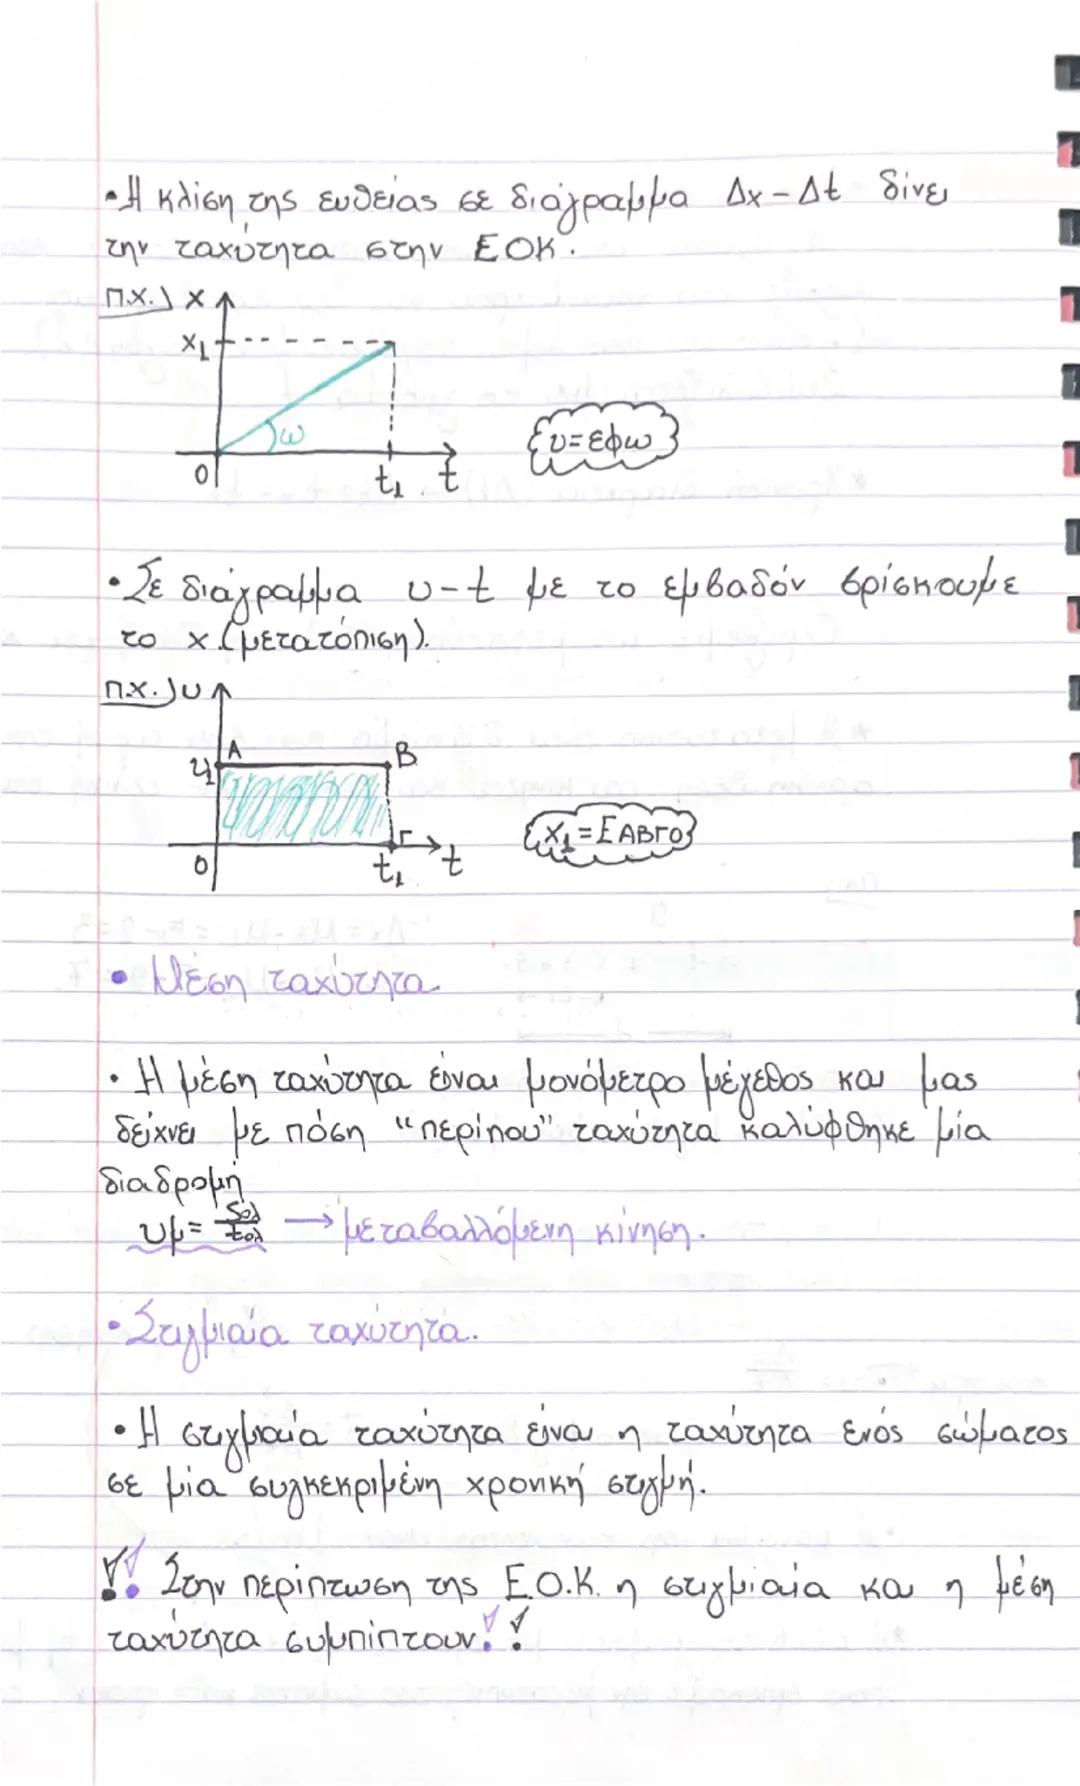 • Η κλίση της ευθείας σε διάγραμμα Δx-Δt δίνει
την ταχύτητα στην ΕΟΚ.
π.χ.) x
x₁
ω
υ=εφω
0 t₁ t
• Σε διάγραμμα υ-t με το εμβαδόν βρίσκουμε
το x (μετατόπιση).
π.χ.) υ
Α Β
υ₁
x₁=ΕΑΒΓΟ
Γ
0 t₁ t
• Μέση ταχύτητα
• Η μέση ταχύτητα είναι μονόμετρο μέγεθος και μας
δείχνει με πόση "περίπου" ταχύτητα καλύφθηκε μία
διαδρομή
υμ= Sολ/tολ → μεταβαλλόμενη κίνηση.
• Στιγμιαία ταχύτητα.
• Η στιγμιαία ταχύτητα είναι η ταχύτητα ενός σώματος
σε μία συγκεκριμένη χρονική στιγμή.
!! Στην περίπτωση της Ε.Ο.Κ. η στιγμιαία και η μέση
ταχύτητα συμπίπτουν!!